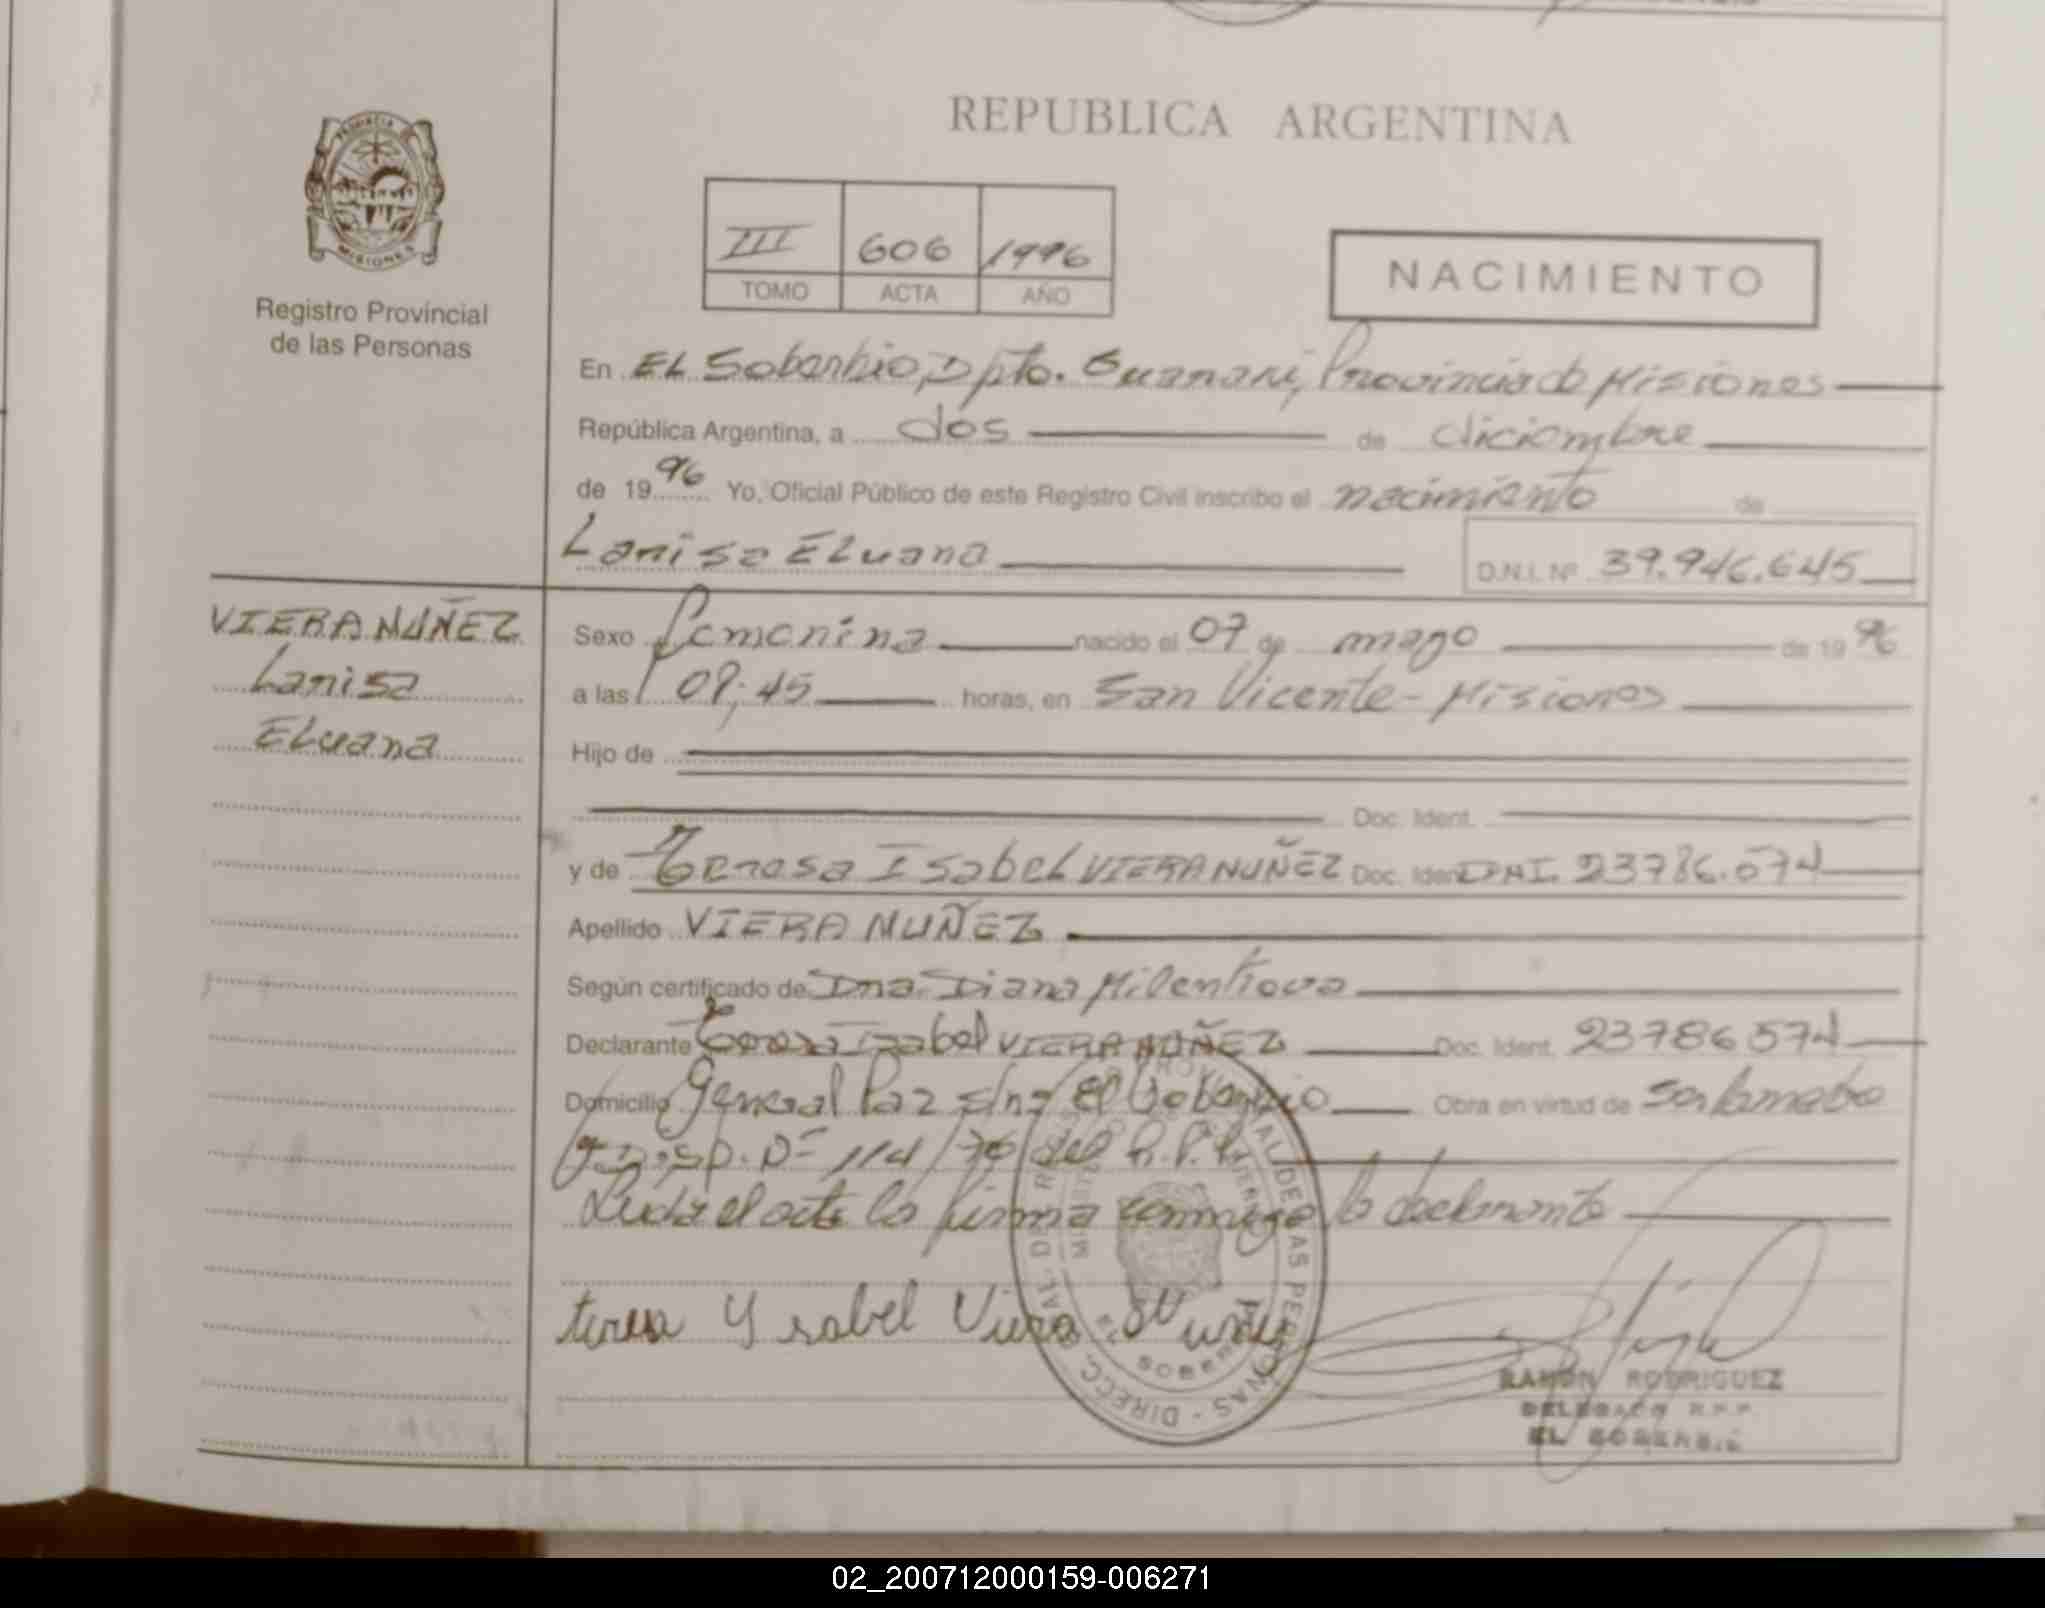 REPUBLICA ARGENTINA
PROVINCIA DE
MISIONES
Registro Provincial
de las Personas
III 606 1996
TOMO ACTA AÑO
NACIMIENTO
En EL Soberbio, Dpto. Guarani, Provincia de Misiones
República Argentina, a dos de diciembre
de 1996 Yo, Oficial Público de este Registro Civil inscribo el nacimiento de
Larisa Eluana D.N.I. Nº 39.946.645
VIERA NUÑEZ
Larisa
Eluana
Sexo femenina nacido el 07 de mayo de 1996
a las 07:45 horas, en San Vicente - Misiones
Hijo de
Doc. Ident.
y de Teresa Isabel VIERA NUÑEZ Doc. Ident. DNI. 23786.574
Apellido VIERA NUÑEZ
Según certificado de Dra. Diana
Declarante Teresa Isabel VIERA NUÑEZ Doc. Ident. 23786574
Domicilio General Paz s/nº El Soberbio Obra en virtud de
Disp. Nº 114/96 del R.P.P.
Leida el acta la firma conmigo la declarante
teresa Ysabel Viera Nuñez
EL SOBERBIO
RAMON RODRIGUEZ
DELEGADO R.P.P.
EL SOBERBIO
02_200712000159-006271